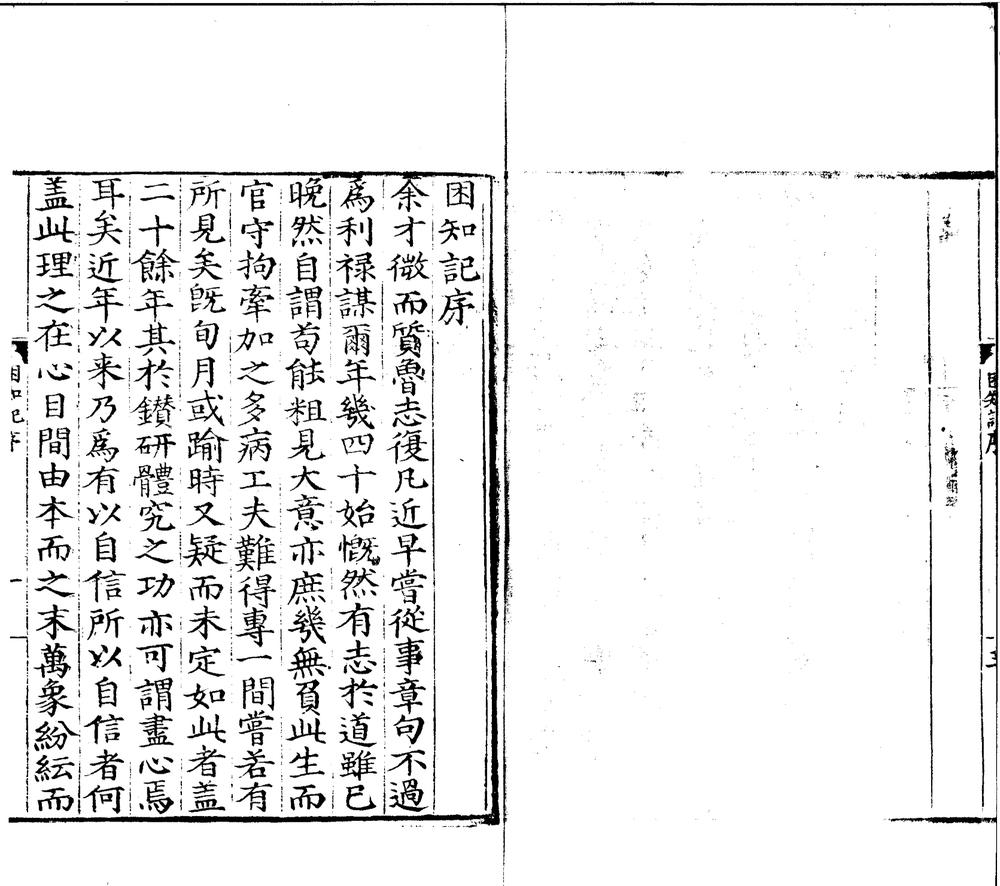 困知記序
五
困知記序
余才微而質魯志復凡近早嘗從事章句不過
爲利禄謀爾年幾四十始慨然有志於道雖已
晚然自謂苟能粗見大意亦庶幾無負此生而
官守拘牽加之多病工夫難得專一間嘗若有
所見矣旣旬月或踰時又疑而未定如此者盖
二十餘年其於鑚研體究之功亦可謂盡心焉
耳矣近年以来乃爲有以自信所以自信者何
盖此理之在心目間由本而之末萬象紛紜而
困知記序
一